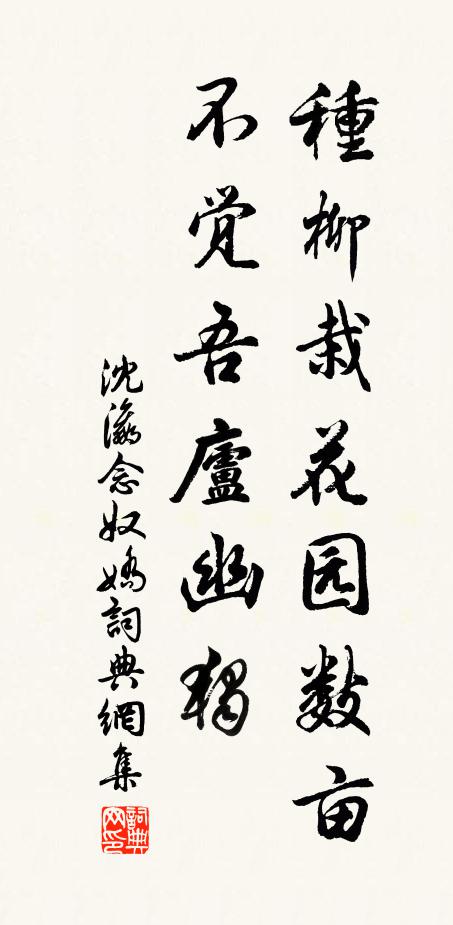 種柳栽花园数亩
不觉吾廬幽獨
沈瀛念奴嬌詞典網集
詞典网印